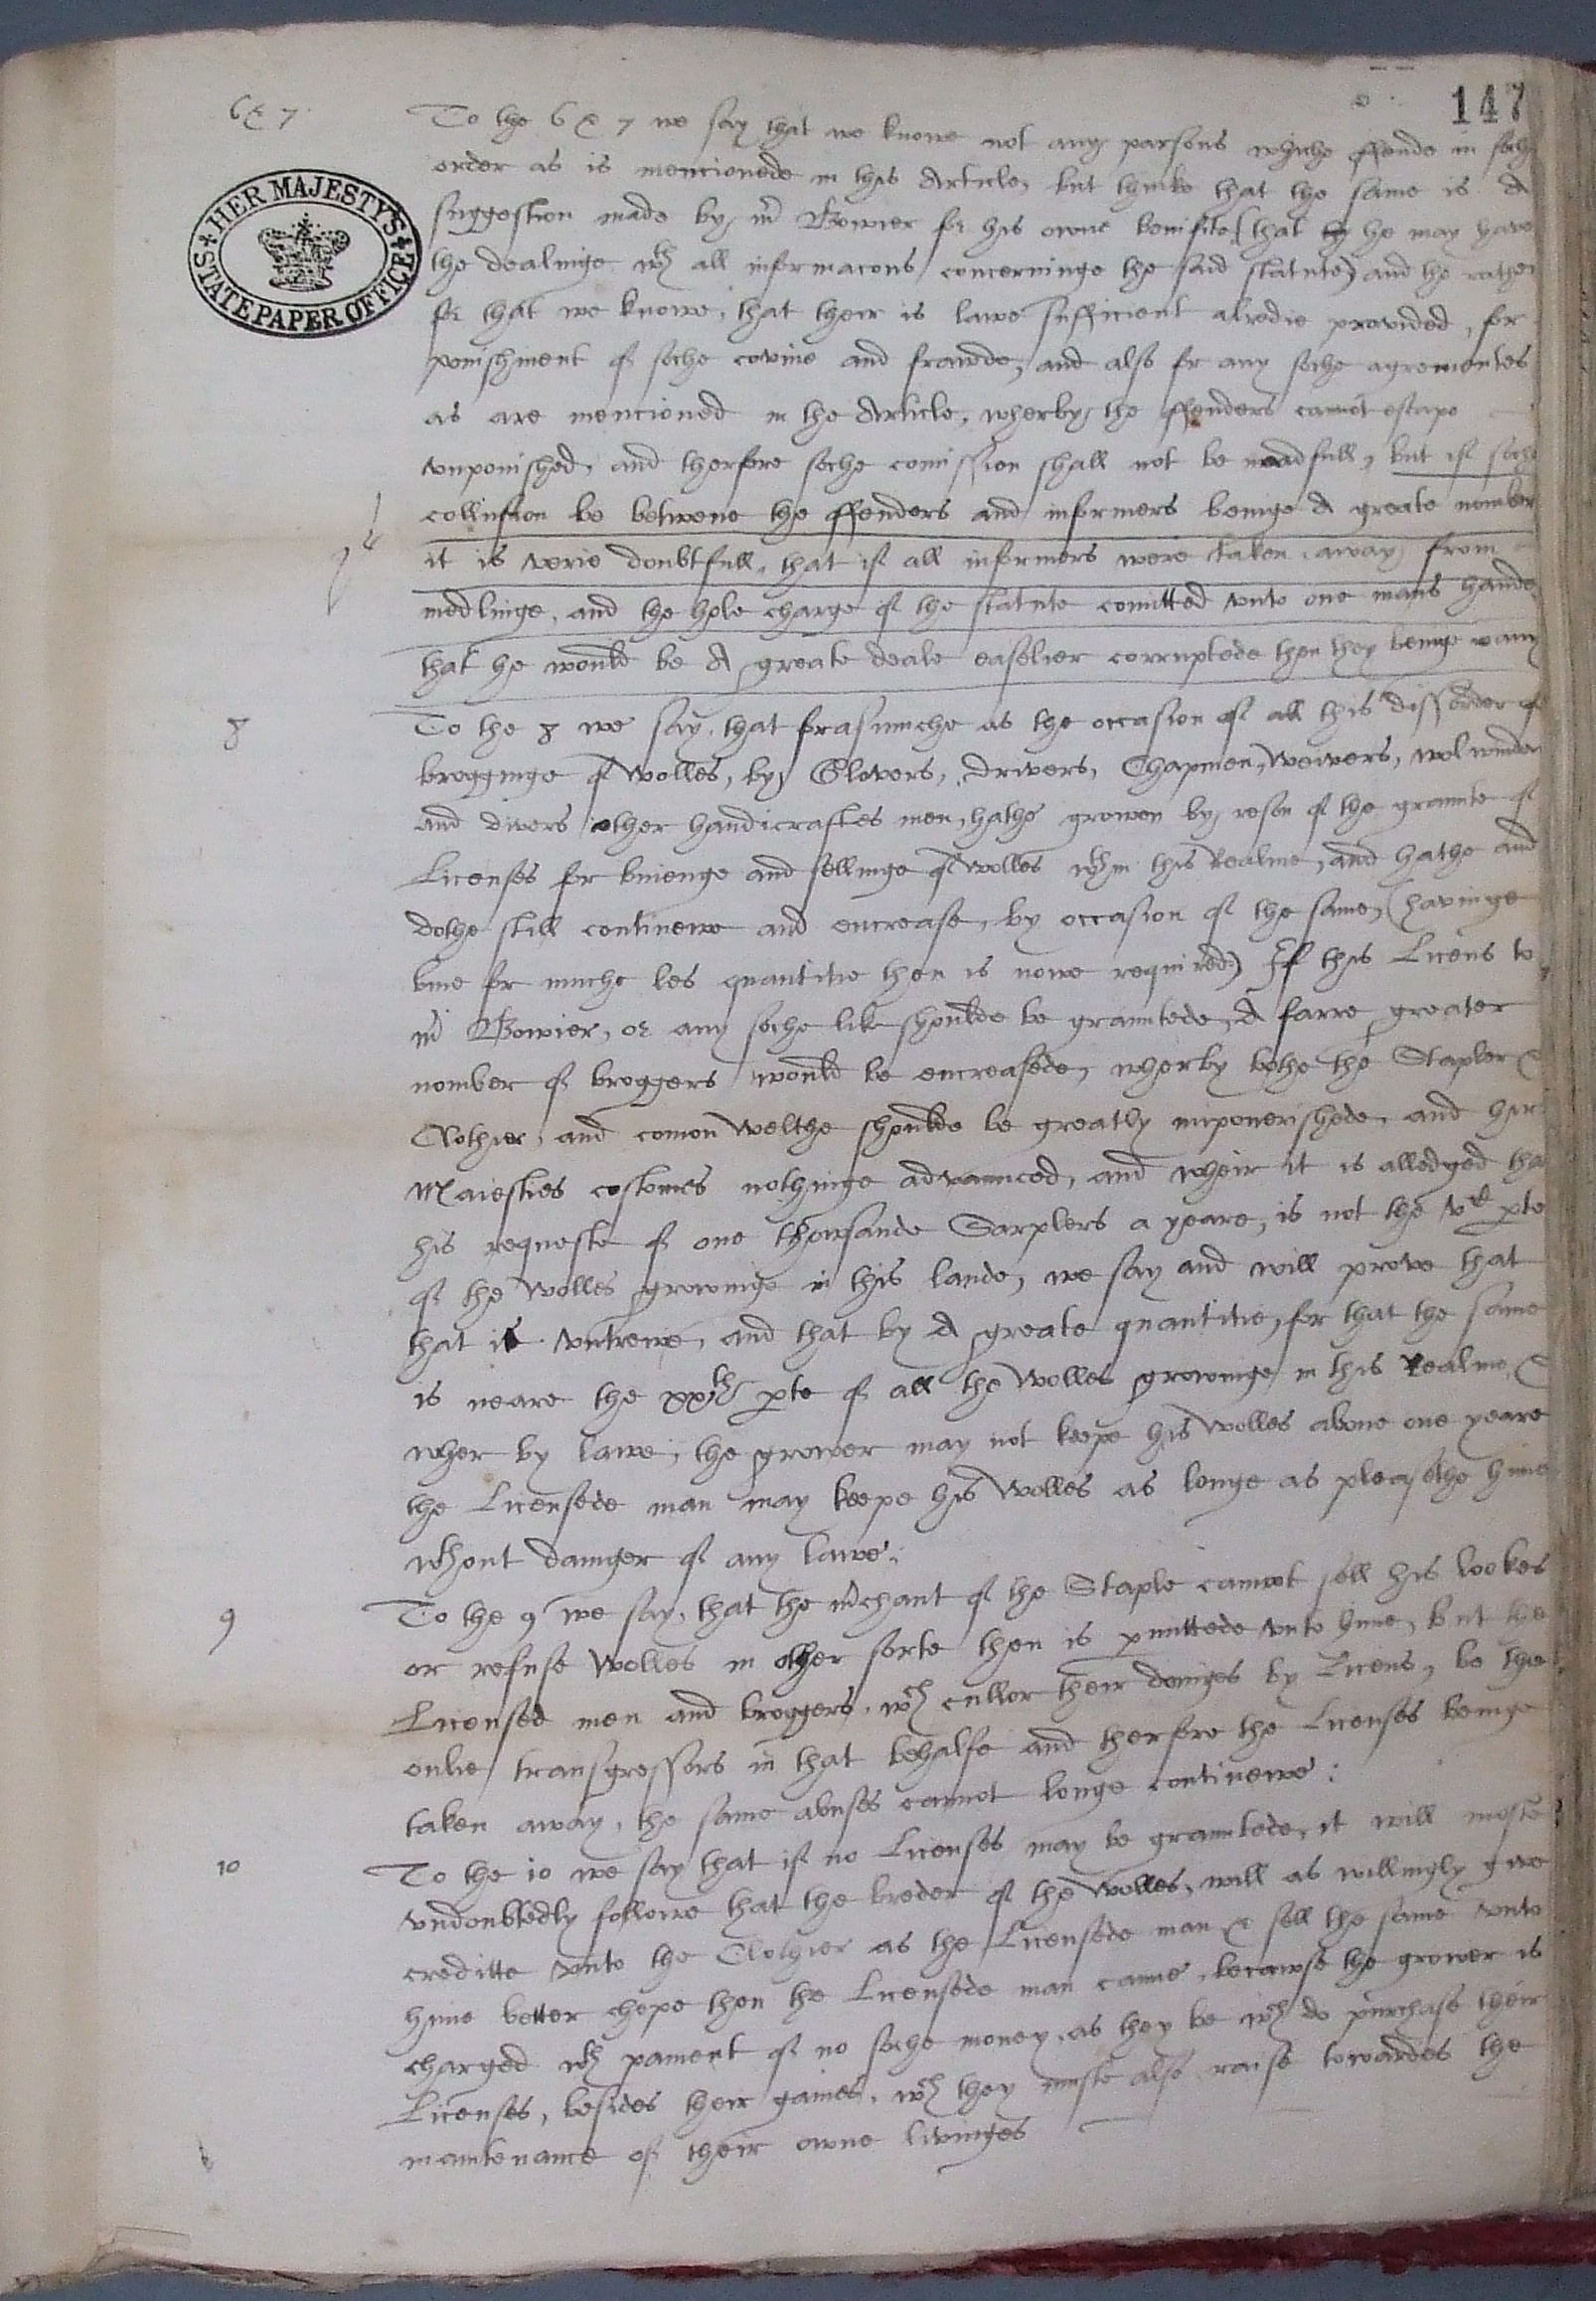 147
6 & 7
To the 6 & 7 we say that we knowe not any parsons whiche ffende in soche
order as is mencionede in this Article, but thinke that the same is A
suggestion made by mr Bowier for his owne benifite (that he may have
the dealinge wth all informacons concerninge the said statute) and the rather
for that we knowe, that their is lawe sufficient alredie provided, for
ponishment of soche covine and frawde, and also for any soche agrementes
as are mencioned in the Article, wherby the ffenders cannot escape
vnponished, and therfore soche comission shall not be neadfull, but if soche
collusion be betwene the ffenders and informers beinge A greate nomber
it is verie doubtfull, that if all informers were taken away from
medlinge, and the hole charge of the statute comitted vnto one mans hande
that he would be A greate deale easelier corruptede then they beinge many
8
To the 8 we say, that forasmuche as the occasion of all this dissorder of
brogginge of wolles, by Glovers, drivers, Chapmen, weivers, wolwinders
and divers other handicraftes men, hathe growen by reson of the graunte of
Licenses for buienge and sellinge of wolles wthin this Realme, and hathe and
dothe still continewe and encrease, by occasion of the same, (havinge
bine for muche les quantitie then is nowe required) If this Licens to
mr Bowier, or any soche like shoulde be grauntede, A farre greater
nomber of broggers would be encreasede, wherby bothe the Stapler &
Clothier, and comon welthe shoulde be greatly impoverishede, and hir
Maiesties costomes nothinge advaunced, and wheir it is alledged tha
his requeste of one thowsande Sarplers a yeare, is not the vd pte
of the wolles growinge in this lande, we say and will prove that
that is vntrewe, and that by A greate quantitie, for that the same
is neare the xxth pte of all the wolles growinge in this Realme, &
wher by lawe, the grower may not keepe his wolles above one yeare
the Licensede man may keepe his wolles as longe as pleasethe hime
wthout daunger of any lawe:
9
To the 9 we say, that the mrchant of the Staple cannot sell his lockes
or refuse wolles in other sorte then is pmittede vnto hime, but the
Licensed men and broggers, wch cullor their doinges by Licens, be the
onlie transgressors in that behalfe and therfore the Licenses beinge
taken away, the same abuses cannot longe continewe:
10
To the 10 we say that if no Licenses may be grauntede, it will moste
vndoubtedly followe that the breder of the wolles, will as willingly give
creditte vnto the Clothier as the Licensede man & sell the same vnto
hime better chepe then the Licensede man canne, becawse the grower is
charged wth pament of no soche money, as they be wch do purchase their
Licenses, besides their gaines, wch they muste also raise towardes the
maintenance of their owne livinges
HER MAJESTY'S
STATE PAPER OFFICE